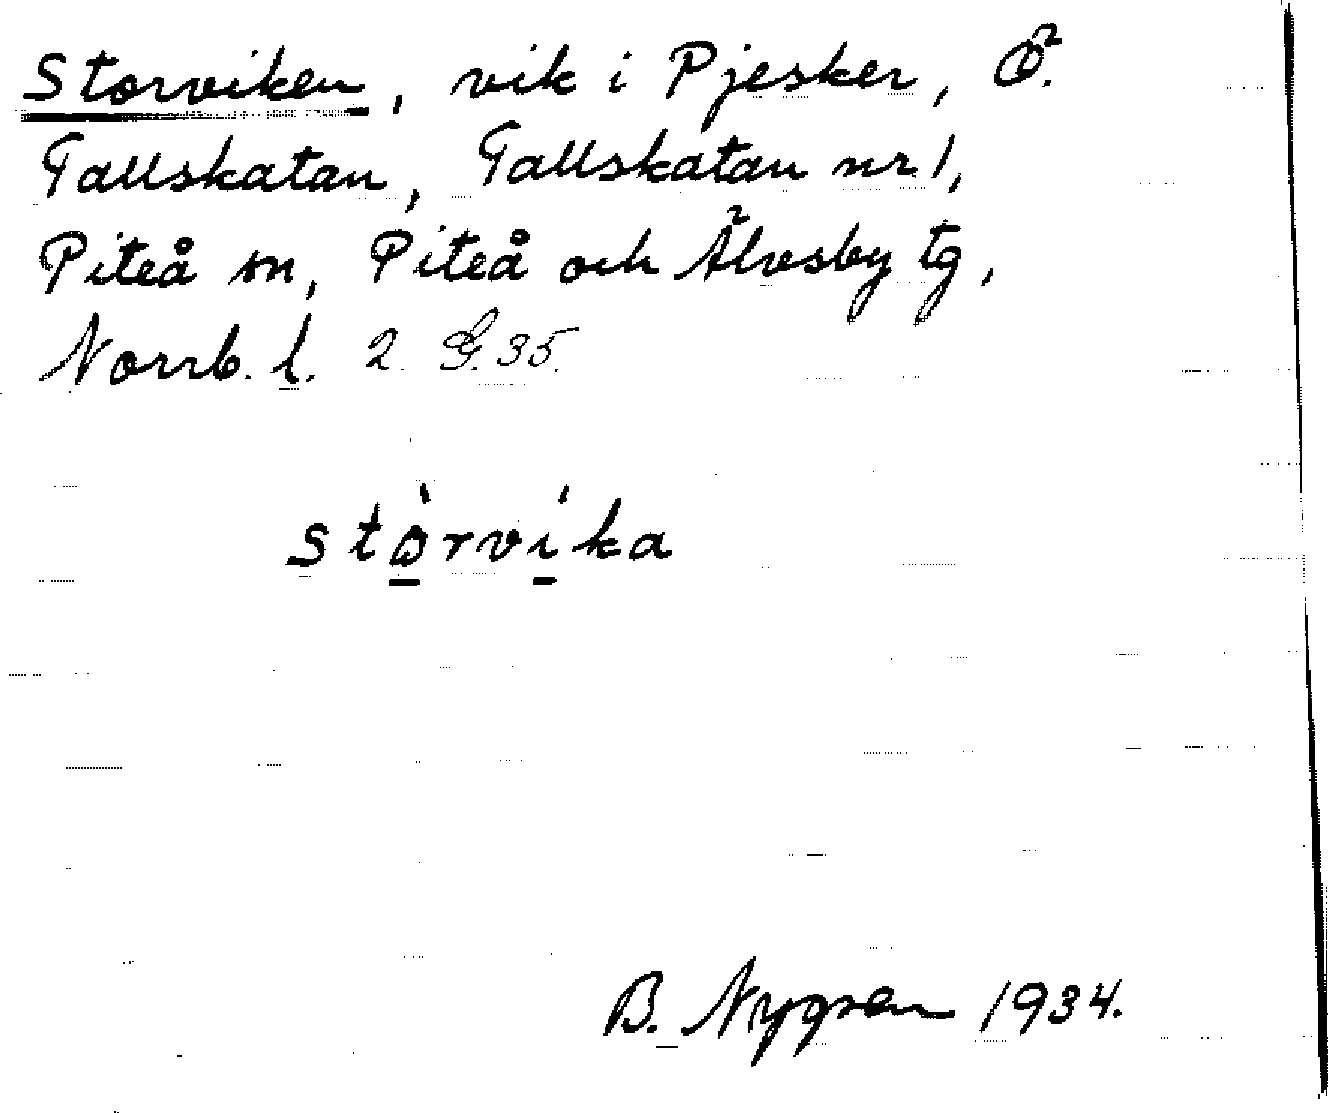 Storviken, vik i Pjesker, Ö.
Tallskatan, Tallskatan nr 1,
Piteå sn, Piteå och Älvsby tg,
Norrb. l. 2 G. 35.
stòrvíka
B. Nygren 1934.